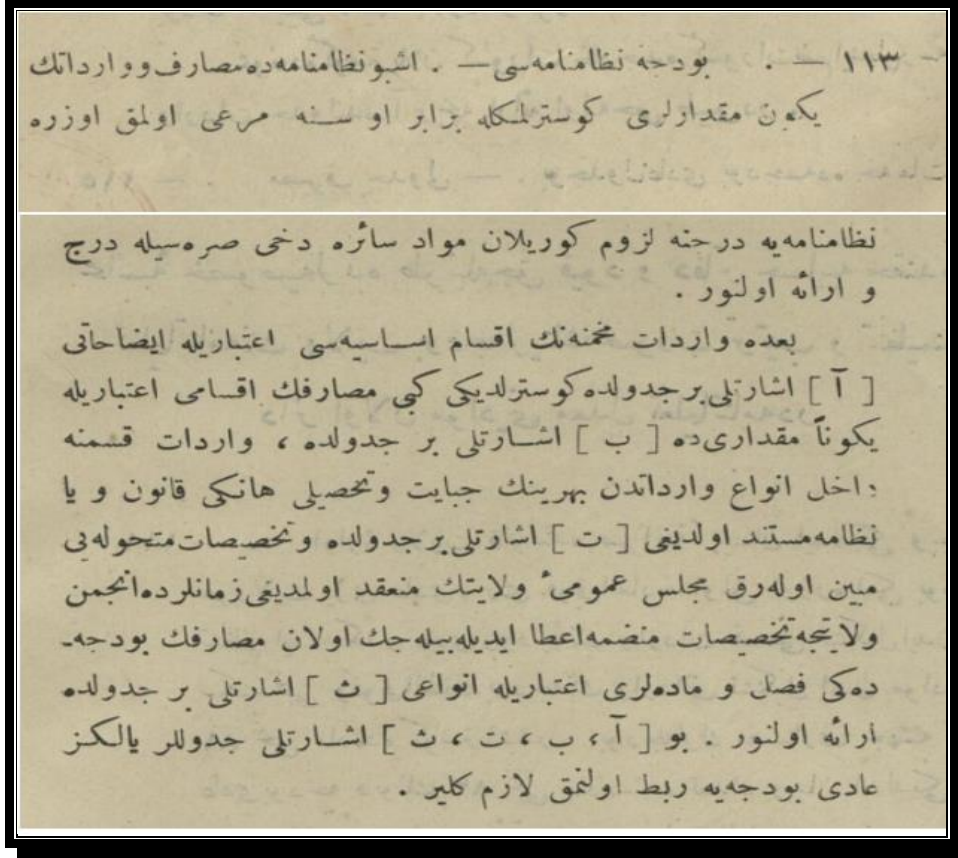 ١١٣ — . بودجه نظامنامه‌سی — . اشبو نظامنامه‌ده مصارف و وارداتك
یكون مقدارلری كوسترلمكله برابر او سنه مرعی اولمق اوزره
نظامنامه‌یه درجنه لزوم كوریلان مواد سائره دخی صره‌سیله درج
و ارائه اولنور .
بعده واردات مخمنه‌نك اقسام اساسیه‌سی اعتباریله ایضاحاتی
[ آ ] اشارتلی بر جدولده كوسترلدیكی كبی مصارفك اقسامی اعتباریله
یكوناً مقداری‌ده [ ب ] اشارتلی بر جدولده ، واردات قسمنه
داخل انواع وارداتدن بهرینك جبایت و تحصیلی هانكی قانون و یا
نظامه مستند اولدیغی [ ت ] اشارتلی بر جدولده و تخصیصات متحوله‌یی
مبین اوله‌رق مجلس عمومیٔ ولایتك منعقد اولمدیغی زمانلرده انجمن
ولایتجه تخصیصات منضمه اعطا ایدیله‌بیله‌جك اولان مصارفك بودجه‌ـ
ده‌كی فصل و ماده‌لری اعتباریله انواعی [ ث ] اشارتلی بر جدولده
ارائه اولنور . بو [ آ ، ب ، ت ، ث ] اشارتلی جدوللر یالكز
عادی بودجه‌یه ربط اولنمق لازم كلیر .